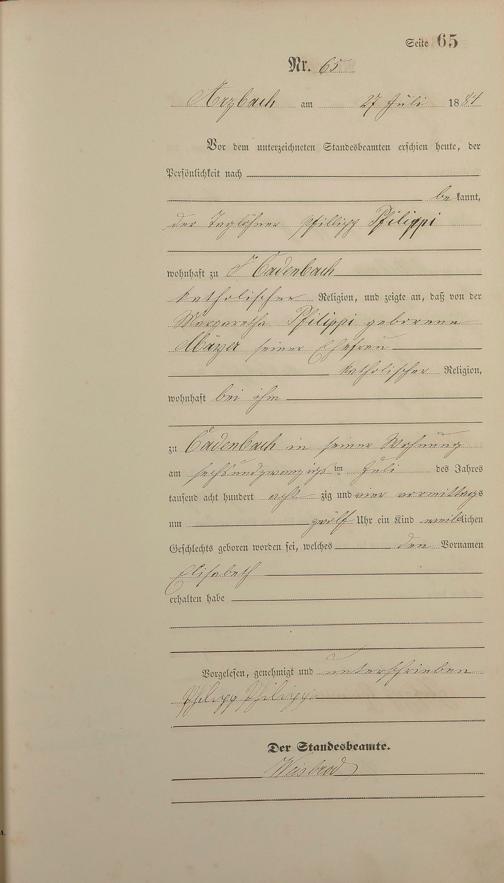 Seite 65
Nr. 65
Arzbach am 27 Juli 1884
Vor dem unterzeichneten Standesbeamten erschien heute, der
Persönlichkeit nach
be kannt,
der Taglöhner Phillipp Philippi
wohnhaft zu Cadenbach
katholischer Religion, und zeigte an, daß von der
Margaretha Philippi geborene
seiner Ehefrau
katholischer Religion,
wohnhaft bei ihm
zu Cadenbach in seiner Wohnung
am sechsundzwanzigs ten Juli des Jahres
tausend acht hundert acht zig und vier vormittags
um zwölf Uhr ein Kind weiblichen
Geschlechts geboren worden sei, welches den Vornamen
Elisabeth
erhalten habe
Vorgelesen, genehmigt und unterschrieben
Philipp Philippi
Der Standesbeamte.
Weisbrod